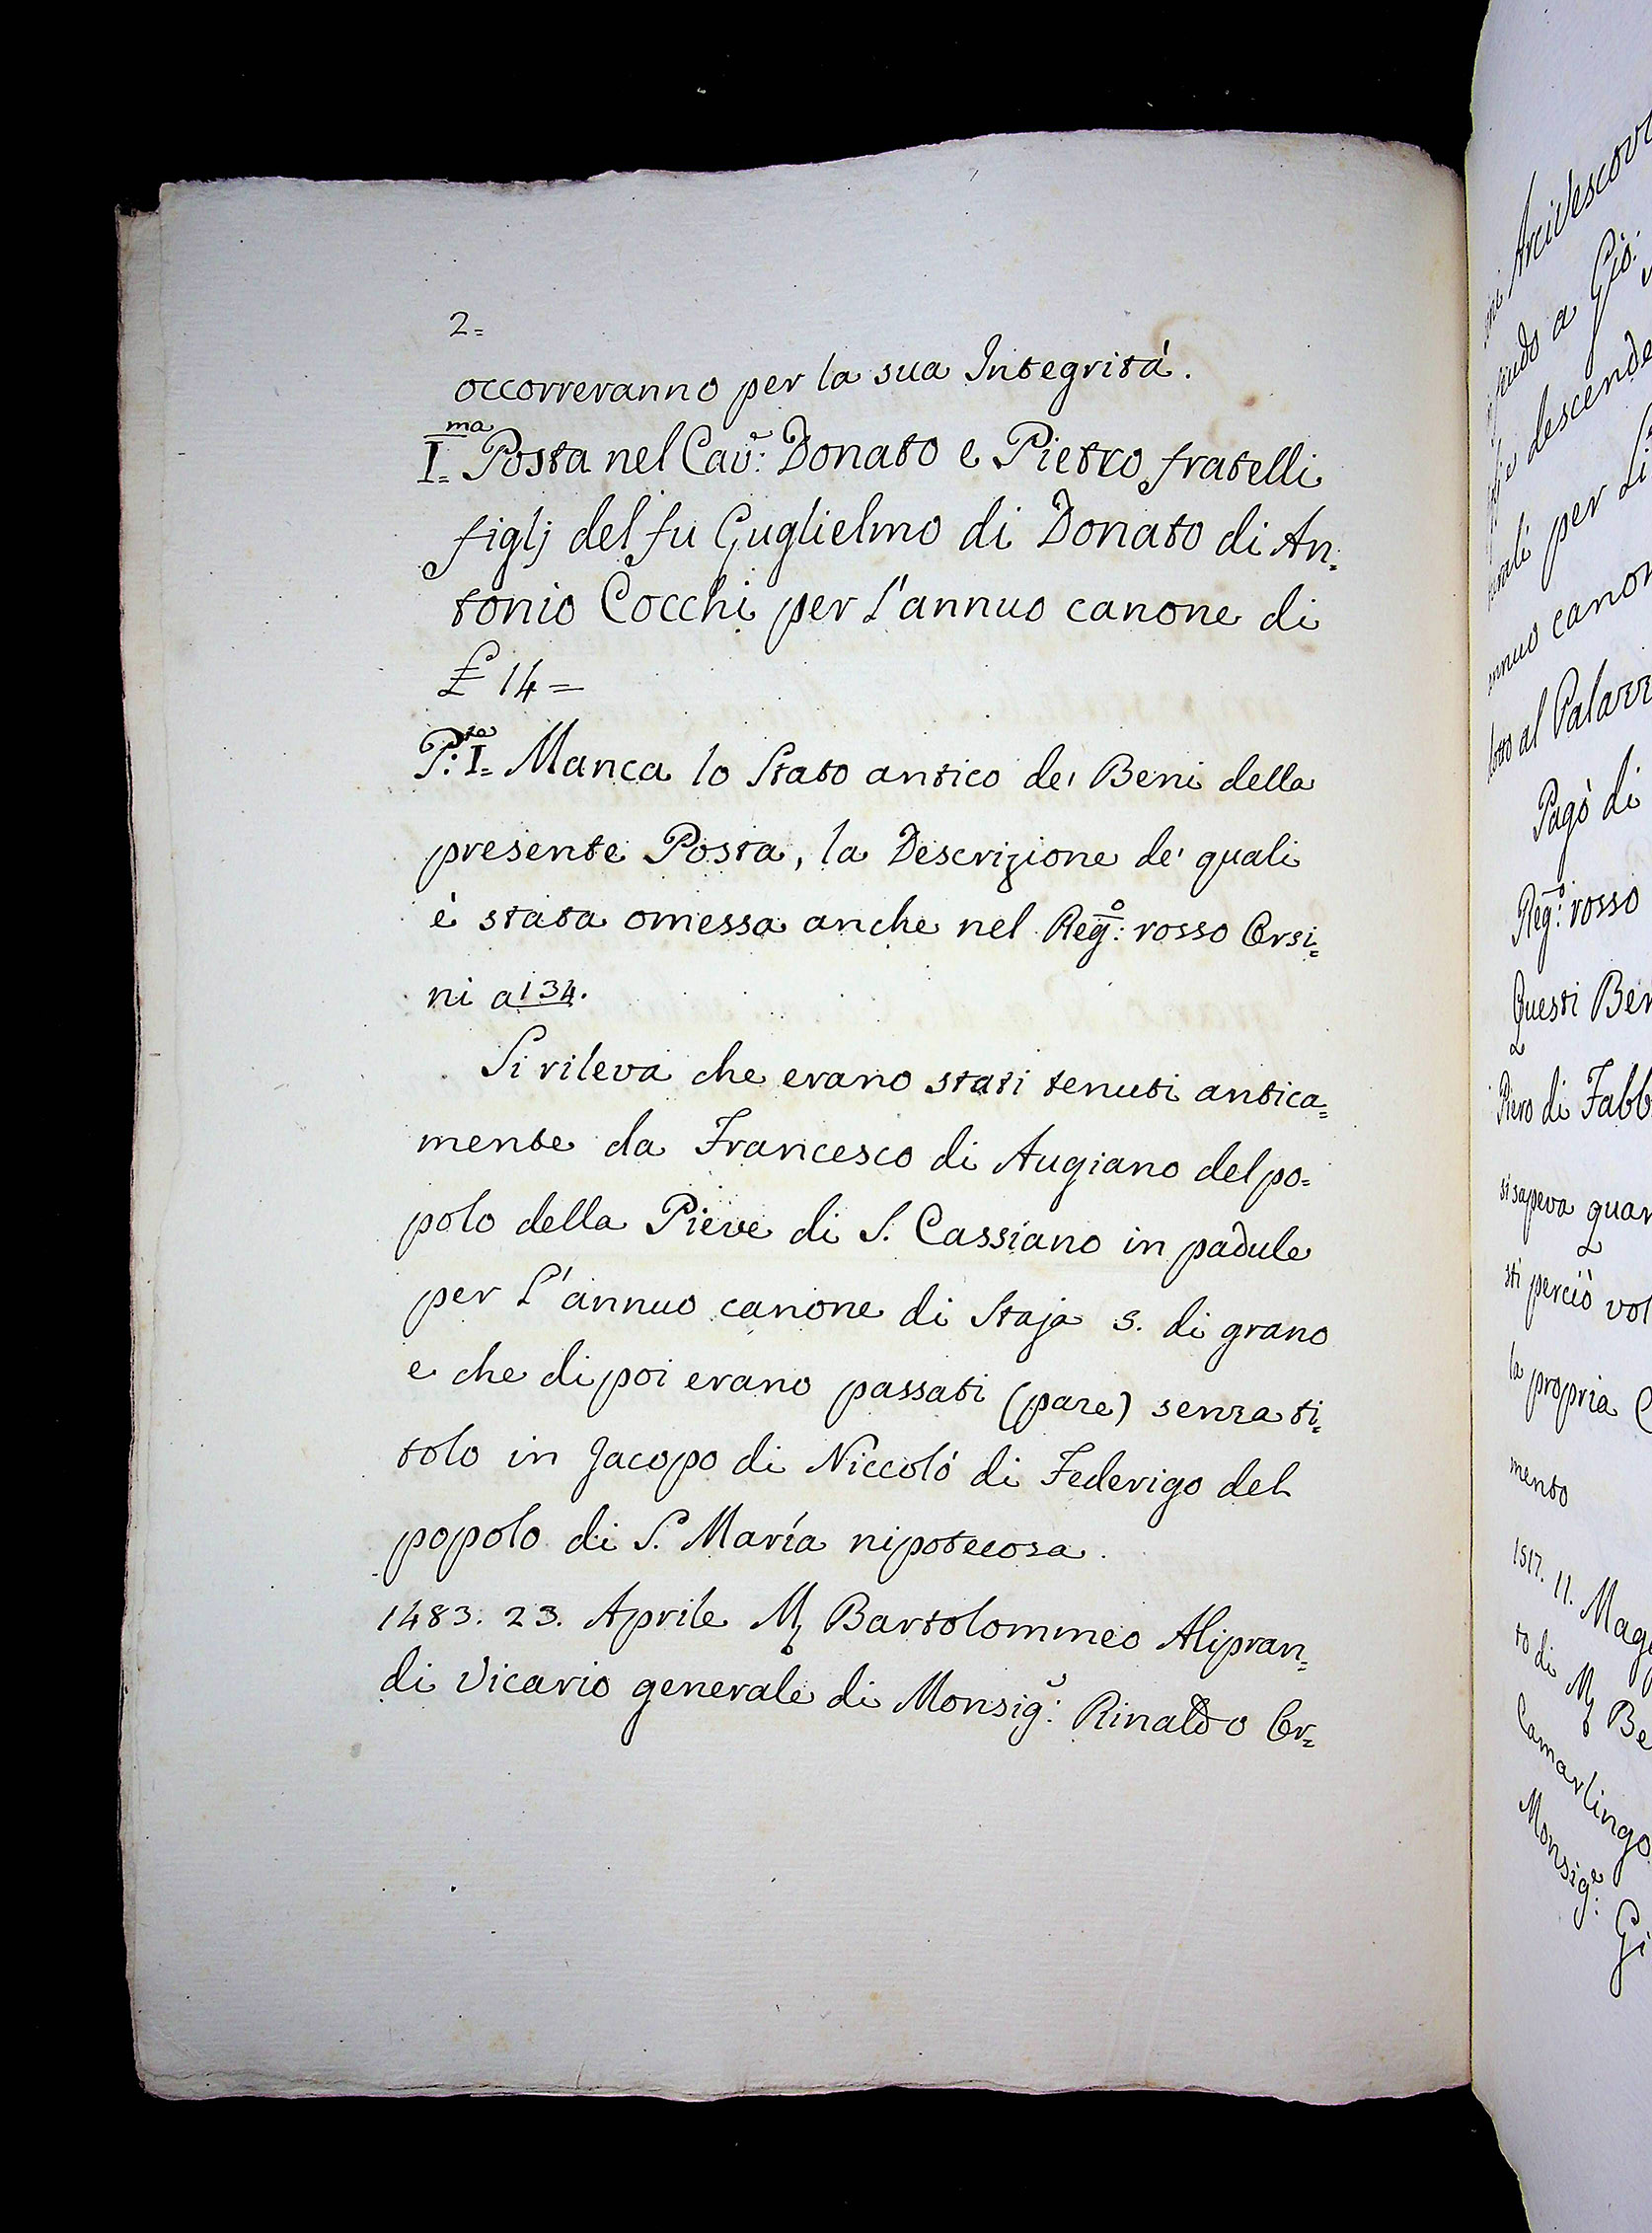 2=
occorreranno per la sua Integritá.
I=ma Posta nel Cav:e Donato e Pietro fratelli
figlj del fu Guglielmo di Donato di An=
tonio Cocchi per l'annuo canone di
£ 14=
P:te I= Manca lo Stato antico de' Beni della
presente Posta, la Descrizione de' quali
è stata omessa anche nel Reg:o rosso Orsi=
ni a 134.
Si rileva che erano stati tenuti antica=
mente da Francesco di Augiano del po=
polo della Pieve di S. Cassiano in padule
per l'annuo canone di Staja 3. di grano
e che di poi erano passati (pare) senza ti=
tolo in Jacopo di Niccoló di Federigo del
popolo di S. María nipotecosa.
1483. 23. Aprile M Bartolommeo Alipran=
di Vicario generale di Monsig:e Rinaldo Or=
Arcivescovi
a Gio:
e descende
per Li
annuo canon
al Palazz
Pagò di
Reg:o rosso
Questi Ben
Piero di Fabb
si sapeva quan
sti perciò vol
la propria C
mento
1517. 11. Magg
to di M Be
Camarlingo
Monsig:e Gi